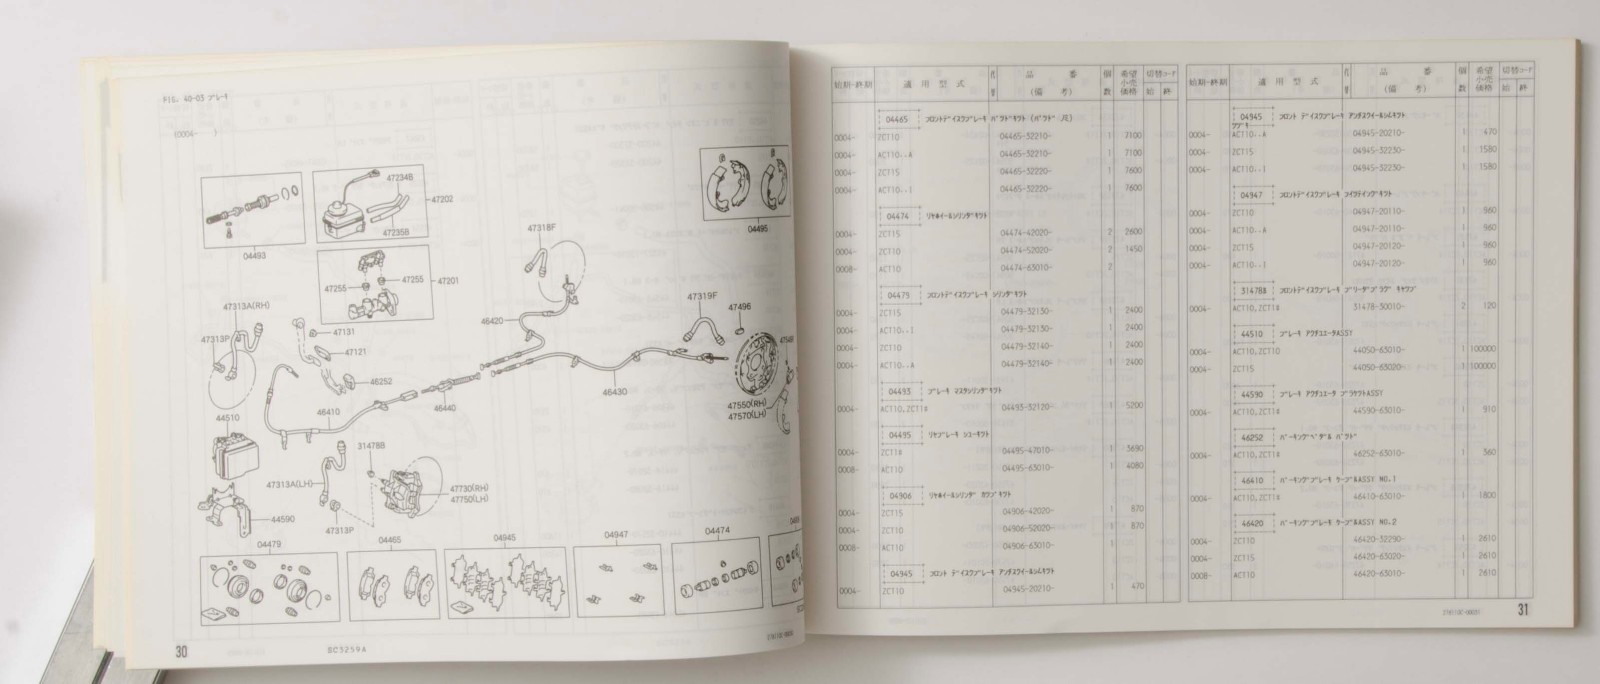 FIG. 40-03 ブレーキ
(0004-      )
04493
47234B
47235B
47202
47255
47255
47201
04495
47318F
47313A(RH)
47313P
47131
47121
46252
46420
47319F
47496
44510
46410
46440
46430
47550(RH)
47570(LH)
31478B
47313A(LH)
44590
47313P
47730(RH)
47750(LH)
04479
04465
04945
04947
04474
30
SC3259A
始期-終期 適用型式 品番 (備考) 個数 希望小売価格 切替コード 始 終
04465 フロントディスクブレーキ パッドキット (パッド ノミ)
0004- ZCT10 04465-32210- 1 7100
0004- ACT10..A 04465-32210- 1 7100
0004- ZCT15 04465-32220- 1 7600
0004- ACT10..I 04465-32220- 1 7600
04474 リヤホイールシリンダキット
0004- ZCT15 04474-42020- 2 2600
0004- ZCT10 04474-52020- 2 1450
0008- ACT10 04474-63010- 2
04479 フロントディスクブレーキ シリンダキット
0004- ZCT15 04479-32130- 1 2400
0004- ACT10..I 04479-32130- 1 2400
0004- ZCT10 04479-32140- 1 2400
0004- ACT10..A 04479-32140- 1 2400
04493 ブレーキ マスタシリンダキット
0004- ACT10,ZCT1# 04493-32120- 1 5200
04495 リヤブレーキ シューキット
0004- ZCT1# 04495-47010- 1 3690
0008- ACT10 04495-63010- 1 4080
04906 リヤホイールシリンダ カップキット
0004- ZCT15 04906-42020- 1 870
0004- ZCT10 04906-52020- 1 870
0008- ACT10 04906-63010- 1
04945 フロント ディスクブレーキ アンチスクイールシムキット
0004- ZCT10 04945-20210- 1 470
始期-終期 適用型式 品番 (備考) 個数 希望小売価格 切替コード 始 終
04945 フロント ディスクブレーキ アンチスクイールシムキット
ツヅキ
0004- ACT10..A 04945-20210- 1 470
0004- ZCT15 04945-32230- 1 1580
0004- ACT10..I 04945-32230- 1 1580
04947 フロントディスクブレーキ フイッティングキット
0004- ZCT10 04947-20110- 1 960
0004- ACT10..A 04947-20110- 1 960
0004- ZCT15 04947-20120- 1 960
0004- ACT10..I 04947-20120- 1 960
31478B フロントディスクブレーキ ブリーダプラグ キャップ
0004- ACT10,ZCT1# 31478-30010- 2 120
44510 ブレーキ アクチュエータASSY
0004- ACT10,ZCT10 44050-63010- 1 100000
0004- ZCT15 44050-63020- 1 100000
44590 ブレーキ アクチュエータ ブラケットASSY
0004- ACT10,ZCT1# 44590-63010- 1 910
46252 パーキングペダル パッド
0004- ACT10,ZCT1# 46252-63010- 1 360
46410 パーキングブレーキ ケーブルASSY NO.1
0004- ACT10,ZCT1# 46410-63010- 1 1800
46420 パーキングブレーキ ケーブルASSY NO.2
0004- ZCT10 46420-32290- 1 2610
0004- ZCT15 46420-63020- 1 2610
0008- ACT10 46420-63010- 1 2610
31